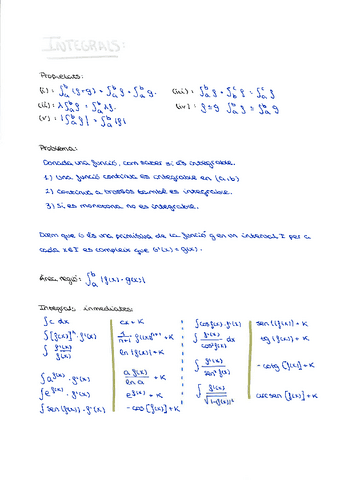 INTEGRALS:
Propietats:
(i): ∫ₐᵇ (f+g) = ∫ₐᵇ f + ∫ₐᵇ g.
(iii): ∫ₐᵇ f + ∫_b^c f = ∫ₐᶜ f
(ii): λ∫ₐᵇ f = ∫ₐᵇ λf.
(iv): f≤g ∫ₐᵇ f ≤ ∫ₐᵇ g
(v): |∫ₐᵇ f| ≤ ∫ₐᵇ |f|
Problema:
Donada una funció, com saber si és integrable.
1) Una funció contínua és integrable en [a,b]
2) contínua a trossos també és integrable.
3) Si és monotona no és integrable.
Diem que G és una primitiva de la funció g en un interval I per a
cada x∈I es compleix que G'(x) = g(x).
Àrea regió: ∫ₐᵇ |f(x)-g(x)|
Integrals immediates:
∫c dx cx + K
∫[f(x)]ⁿ · f'(x) 1/(n+1) f(x)ⁿ⁺¹ + K
∫ f'(x)/f(x) ln |f(x)| + K
∫a^f(x) · f'(x) a^f(x)/ln a + K
∫e^f(x) · f'(x) e^f(x) + K
∫sen (f(x)) · f'(x) - cos [f(x)] + K
∫cos f(x) · f'(x) sen [f(x)] + K
∫ f'(x)/cos² f(x) dx tg [f(x)] + K
∫ f'(x)/sen² f(x) - cotg [f(x)] + K
∫ f'(x)/√(1-f(x)²) arcsen [f(x)] + K